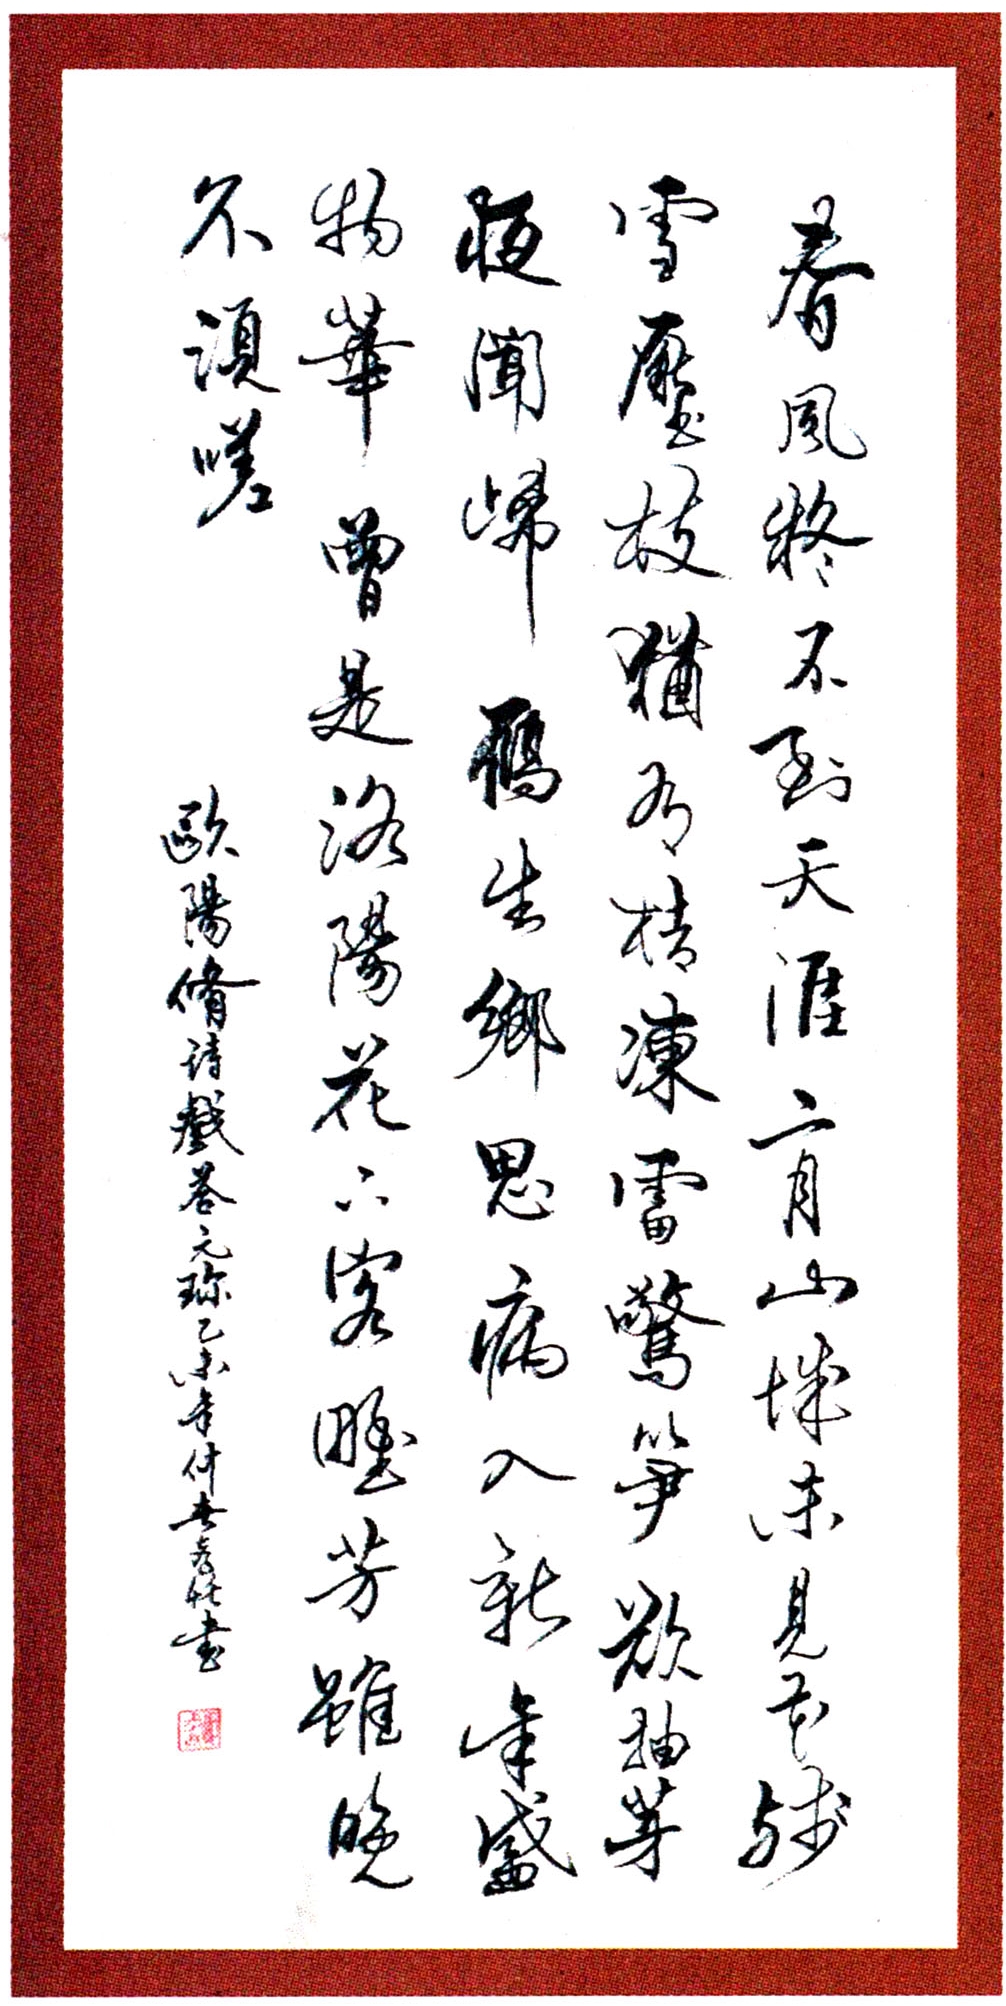 春風疑不到天涯二月山城未見花殘
雪壓枝猶有桔凍雷驚笋欲抽芽
夜聞歸鴈生鄉思病入新年感
物華曾是洛陽花下客野芳雖晚
不須嗟
歐陽脩詩戲答元珍乙未年仲春書